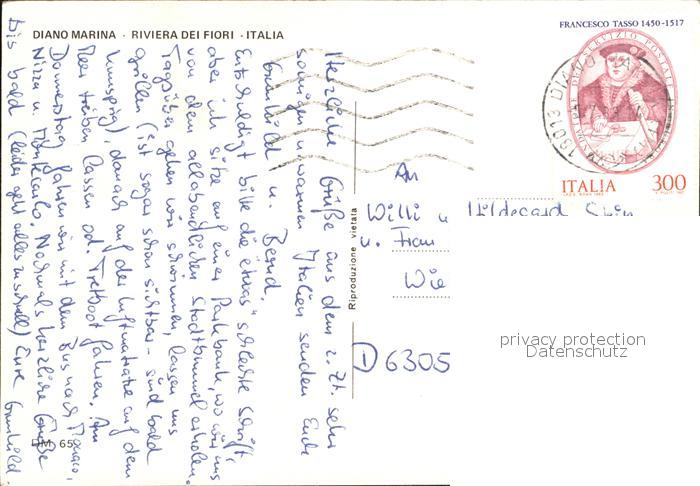 DIANO MARINA · RIVIERA DEI FIORI · ITALIA
FRANCESCO TASSO 1450-1517
ITALIA 300
Herzliche Grüße aus dem z. Zt. sehr
sonnigen u. warmen Italien senden Euch
Gunhild u. Bernd.
Entschuldigt bitte die "etwas" schlechte Schrift,
aber ich sitze auf einer Parkbank, wo wir uns
von dem allabendlichen Stadtbummel erholen.
Tagsüber gehen wir schwimmen, lassen uns
grillen (ist sogar schon sichtbar - sind bald
knusprig), danach auf der Luftmatratze auf dem
Meer treiben lassen od. Tretboot fahren. Am
Donnerstag fahren wir mit dem Bus nach Monaco,
Nizza u. Montecarlo. Nochmals herzliche Grüße
Bis bald (leider geht alles zu schnell) Eure Gunhild
Riproduzione vietata
An
Willi u. Hildegard
u. Frau
Wie
D 6305
DM 65
privacy protection
Datenschutz